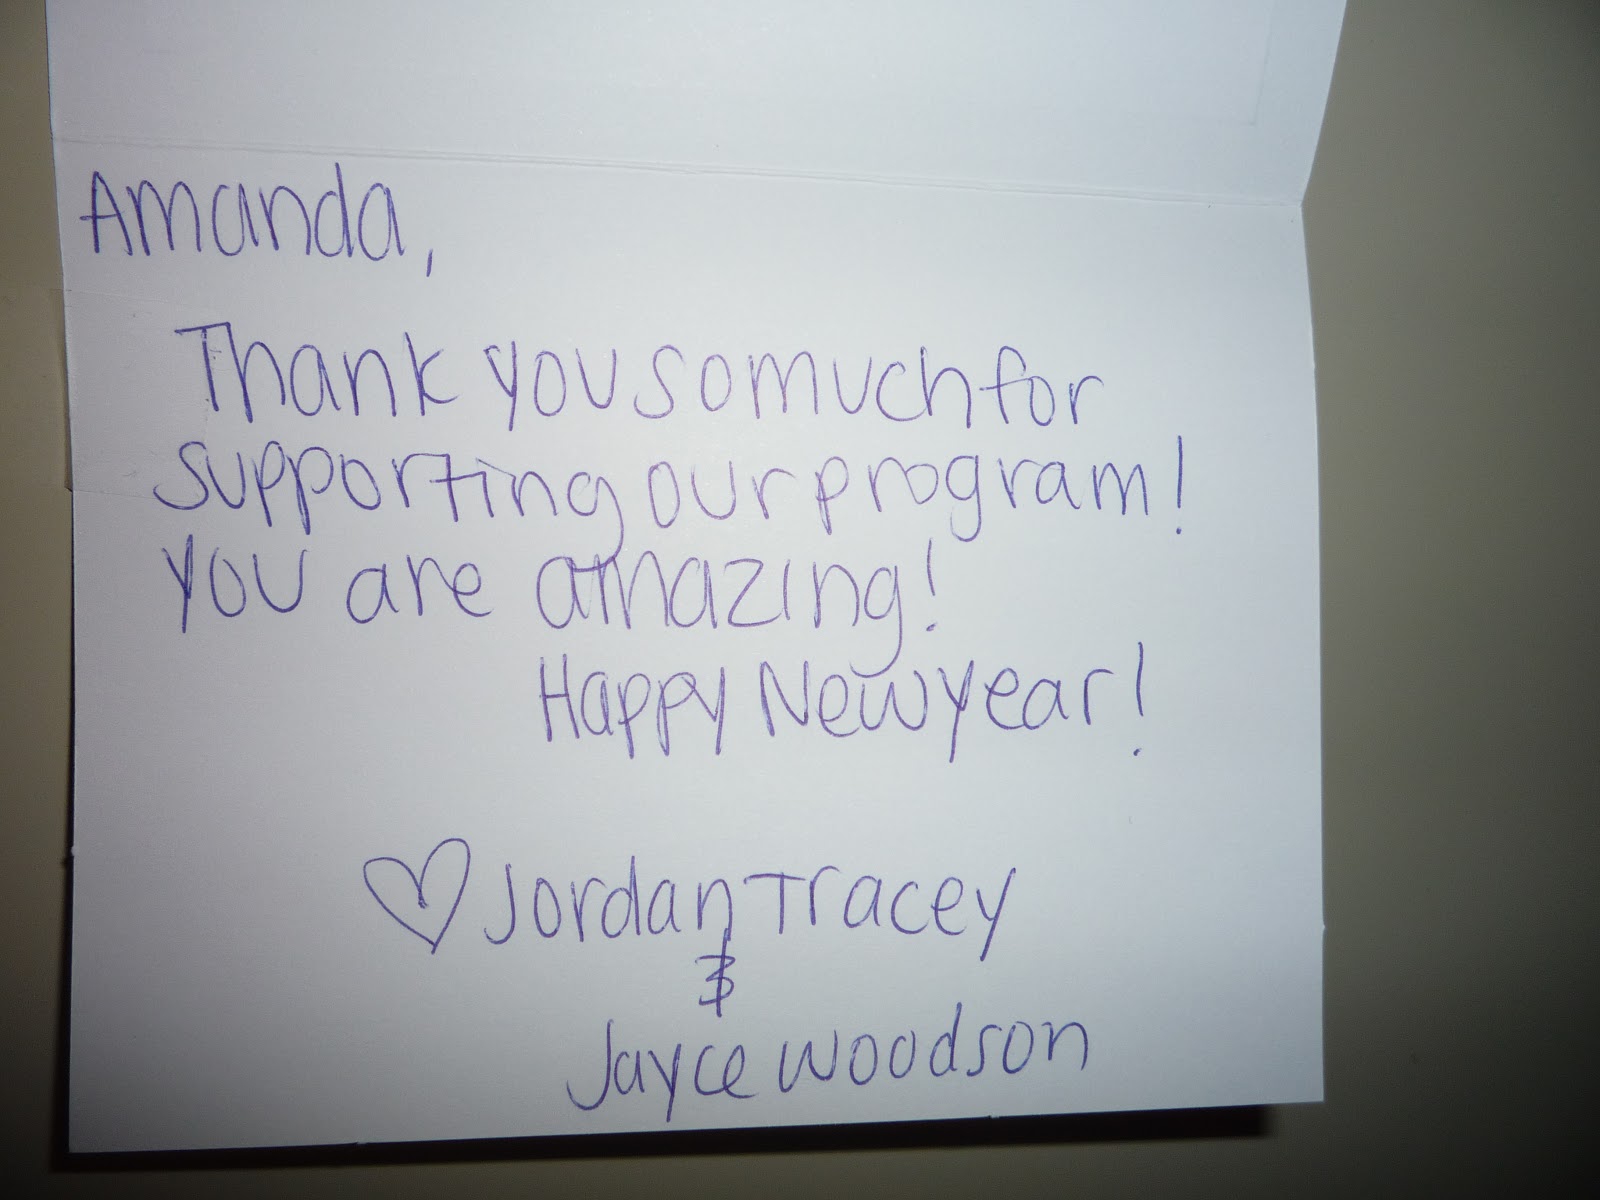 Amanda,
Thank you so much for
supporting our program!
You are amazing!
Happy New year!
♡ Jordan Tracey
&
Jayce Woodson